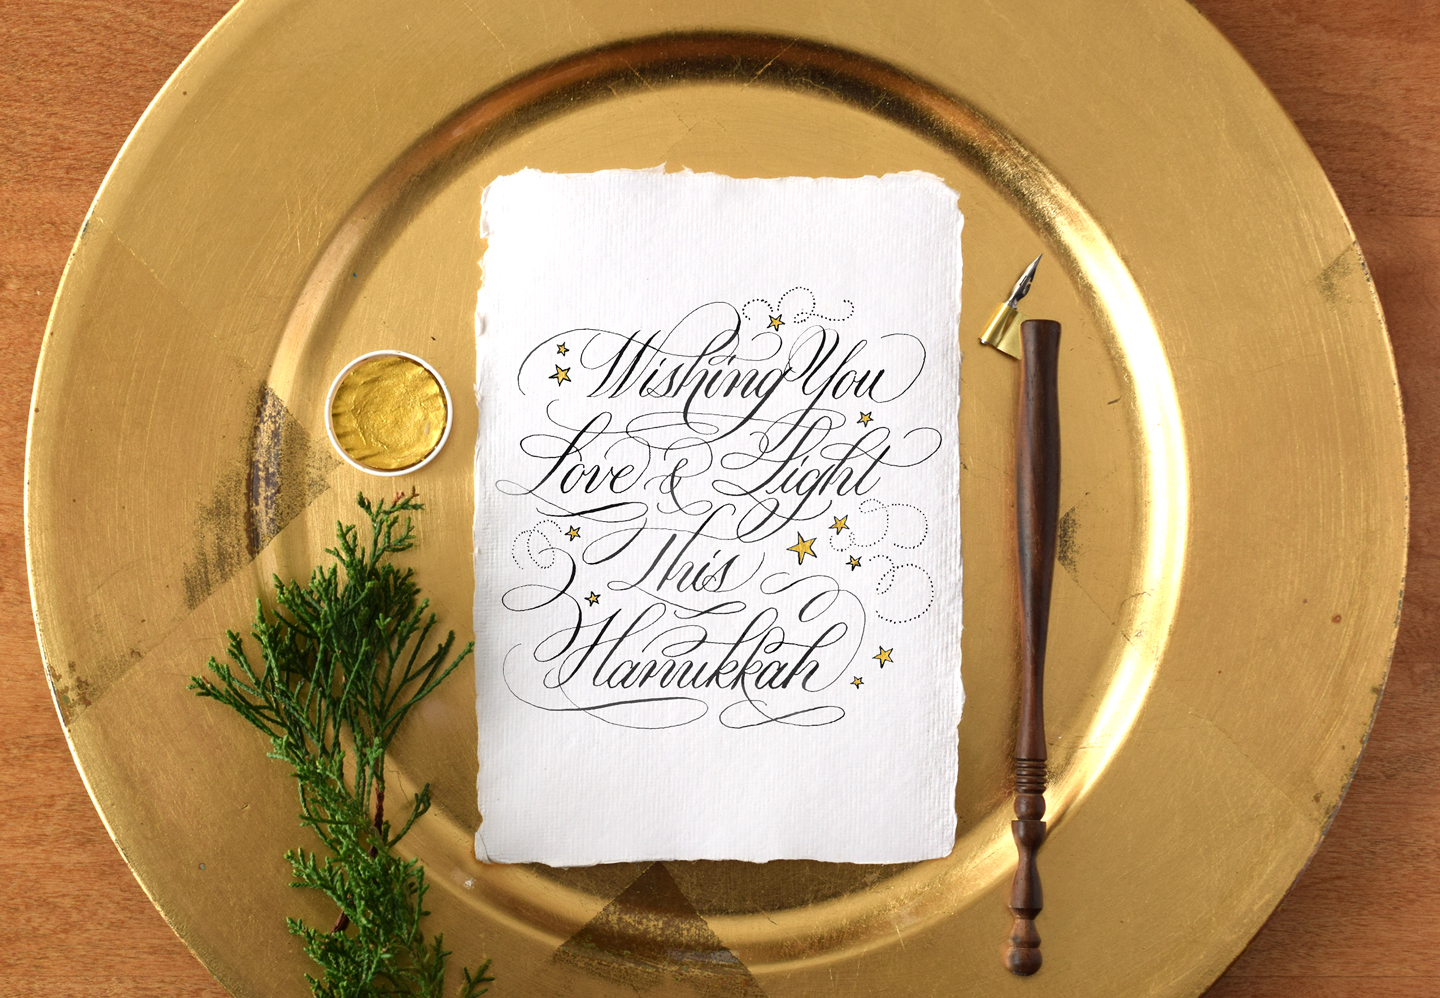 Wishing You
Love & Light
This
Hanukkah